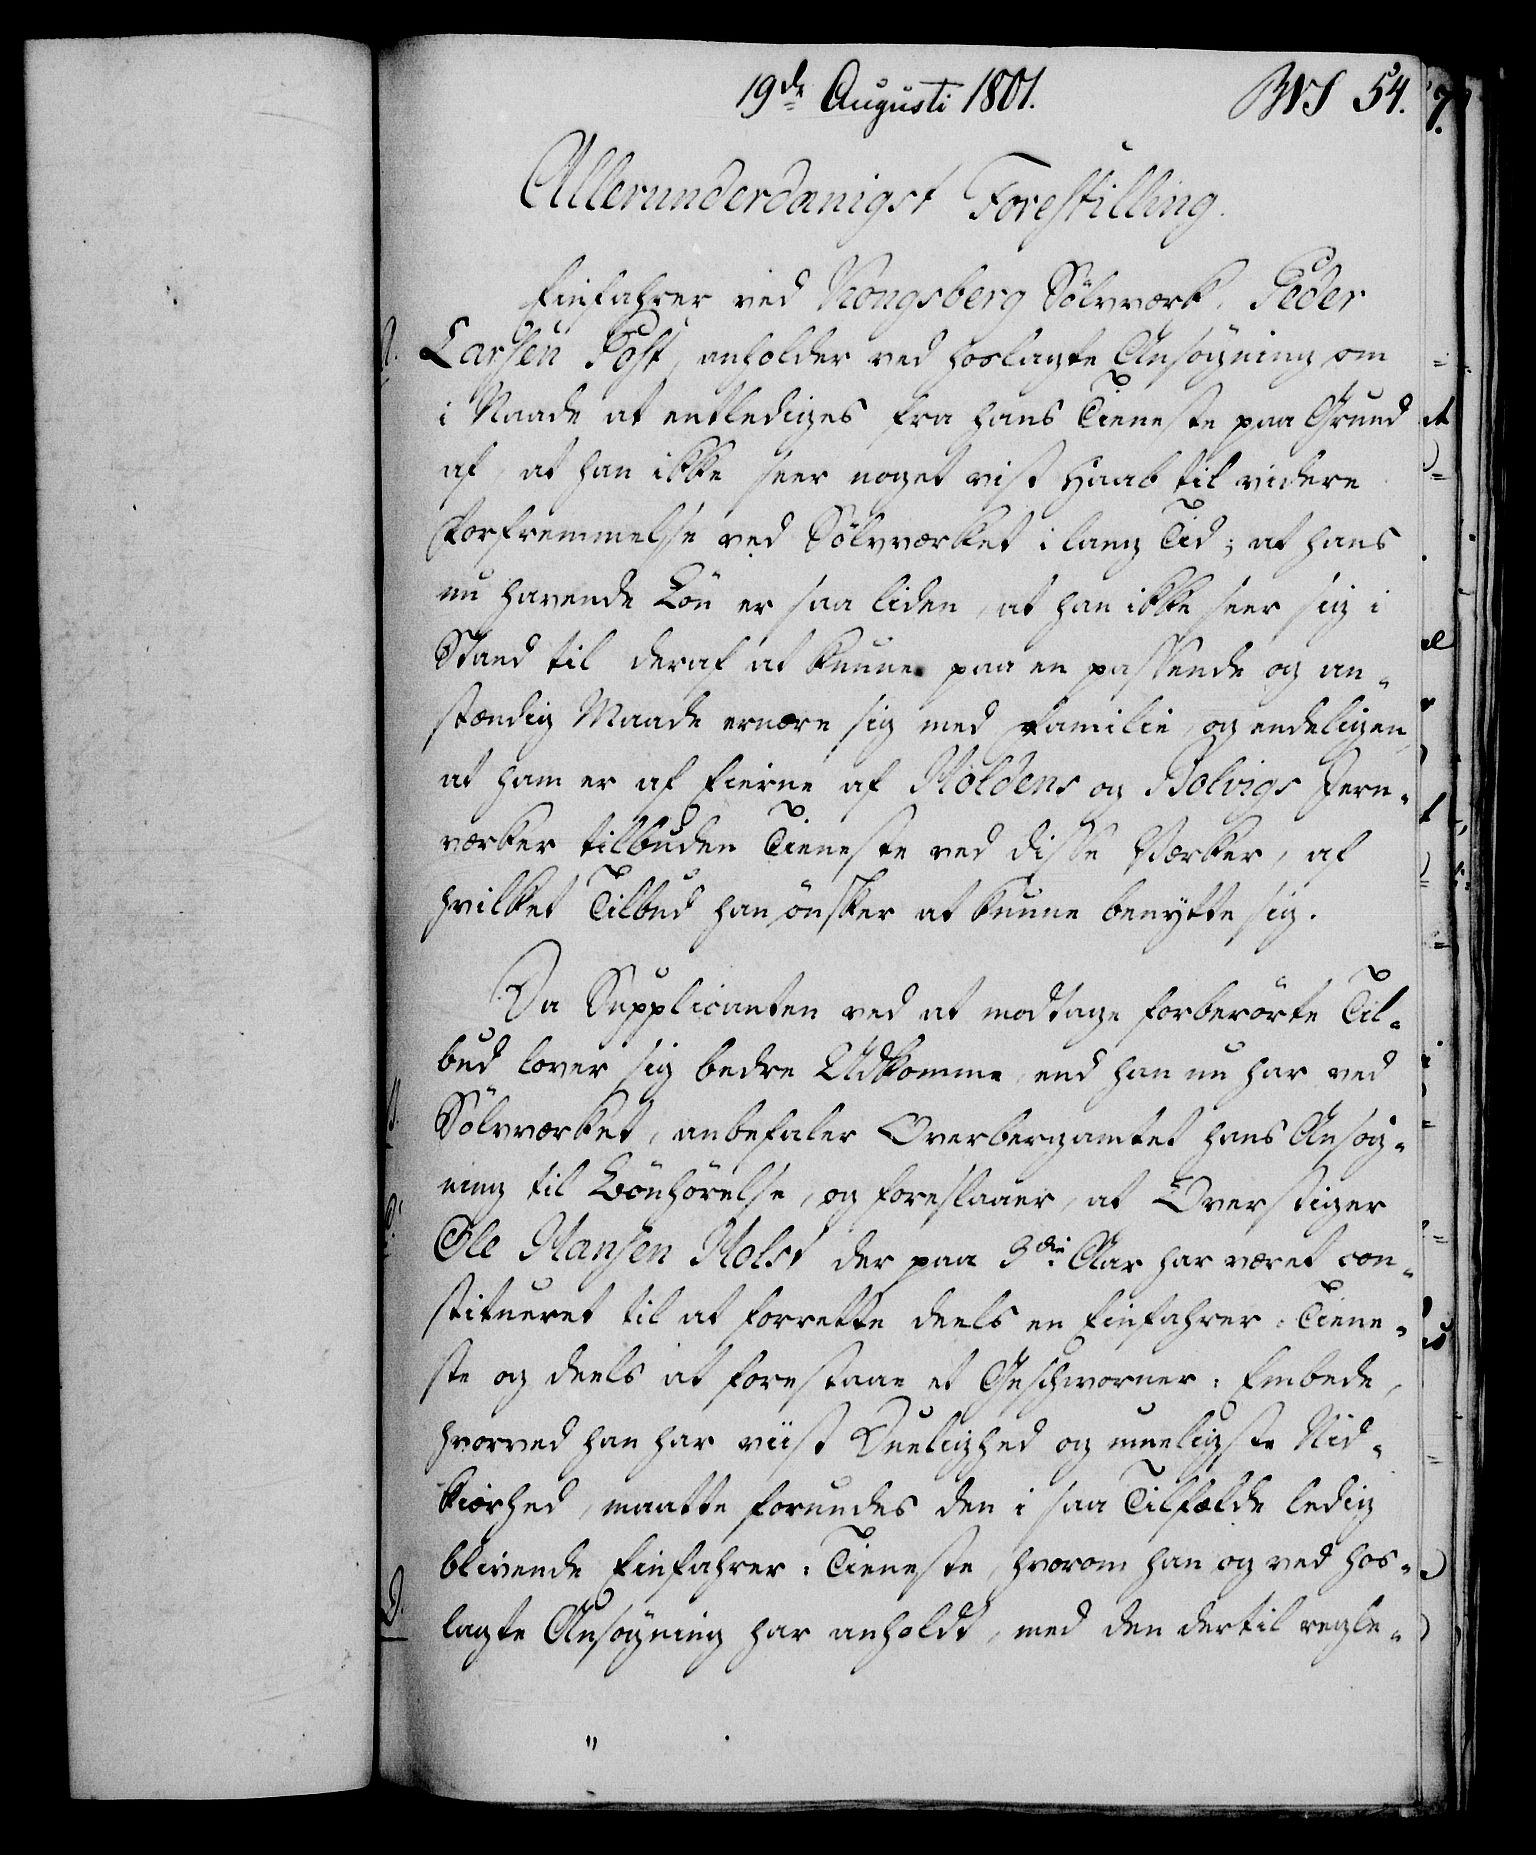 19de Augusti 1801.
54.
Allerunderdanigst Forestilling.
Einfahrer ved Kongsberg Sölvværk, Peder
Larsen Post, anholder ved hoslagte Ansøgning om
i Naade at entlediges fra hans Tieneste paa Grund
af, at han ikke seer noget vist Haab til videre
Forfremmelse ved Sölvværket i lang Tid; at hans
nu havende Lön er saa liden, at han ikke seer sig i
Stand til deraf at kunne paa en passende og an-
stændig Maade ernære sig med Familie, og endeligen,
at ham er af Eierne af Holdens og Bolvigs Jern-
værker tilbuden Tieneste ved disse Værker, af
hvilket Tilbud han önsker at kunne benytte sig.
Da Supplicanten ved at modtage forberörte Til-
bud lover sig bedre Udkomme, end han nu har ved
Sölvværket, anbefaler Overbergamtet hans Ansög-
ning til Bönhörelse, og foreslaaer, at Overstiger
Ole Hansen Holst der paa 3die Aar har været con-
stitueret til at forrette deels en Einfahrer-Tiene-
ste og deels at forestaae et Geschworner-Embede,
hvorved han har viist Duelighed og mueligste Nid-
kiærhed, maatte forundes den i saa Tilfælde ledig
blivende Einfahrer-Tieneste, hvorom han og ved hos-
lagte Ansøgning har anholdt, med den dertil regle-